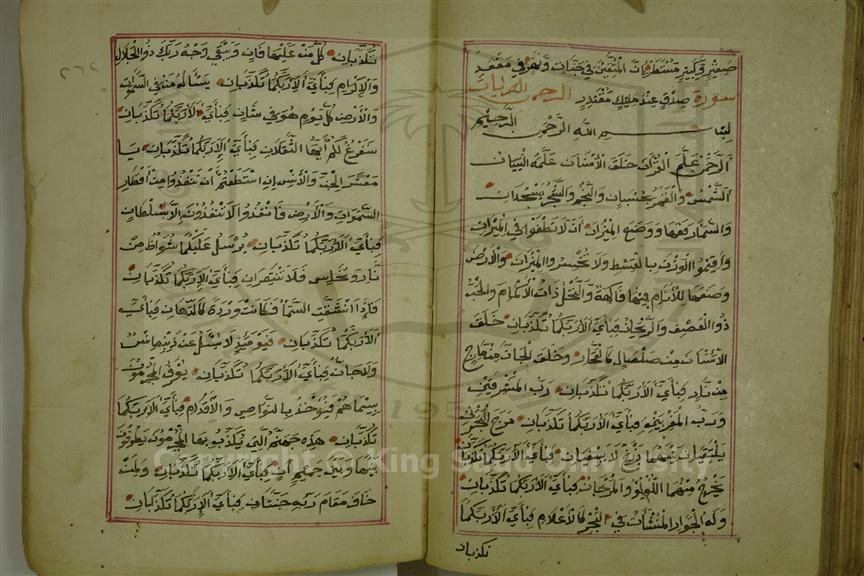 صغير وكبير مستطر ان المتقين في جنات ونهر في مقعد
صدق عند مليك مقتدر سورة الرحمن
بسم الله الرحمن الرحيم
الرحمن علم القران خلق الانسان علمه البيان
الشمس والقمر بحسبان والنجم والشجر يسجدان
والسماء رفعها ووضع الميزان ان لا تطغوا في الميزان
واقيموا الوزن بالقسط ولا تخسروا الميزان والارض
وضعها للانام فيها فاكهة والنخل ذات الاكمام والحب
ذو العصف والريحان فباي الاء ربكما تكذبان خلق
الانسان من صلصال كالفخار وخلق الجان من مارج
من نار فباي الاء ربكما تكذبان رب المشرقين
ورب المغربين فباي الاء ربكما تكذبان مرج البحرين
يلتقيان بينهما برزخ لا يبغيان فباي الاء ربكما تكذبان
يخرج منهما اللؤلؤ والمرجان فباي الاء ربكما تكذبان
وله الجوار المنشات في البحر كالاعلام فباي الاء ربكما
تكذبان
تكذبان كل من عليها فان ويبقى وجه ربك ذو الجلال
والاكرام فباي الاء ربكما تكذبان يسئاله من في السموات
والارض كل يوم هو في شان فباي الاء ربكما تكذبان
سنفرغ لكم ايها الثقلان فباي الاء ربكما تكذبان يا
معشر الجن والانس ان استطعتم ان تنفذوا من اقطار
السموات والارض فانفذوا لا تنفذون الا بسلطان
فباي الاء ربكما تكذبان يرسل عليكما شواظ من
نار ونحاس فلا تنتصران فباي الاء ربكما تكذبان
فاذا انشقت السما فكانت وردة كالدهان فباي
الاء ربكما تكذبان فيومئذ لا يسئل عن ذنبه انس
ولا جان فباي الاء ربكما تكذبان يعرف المجرمون
بسيماهم فيؤخذ بالنواصي والاقدام فباي الاء ربكما
تكذبان هذه جهنم التي يكذب بها المجرمون يطوفون
بينها وبين حميم ان فباي الاء ربكما تكذبان ولمن
خاف مقام ربه جنتان فباي الاء ربكما تكذبان
Copyright © King Saud University